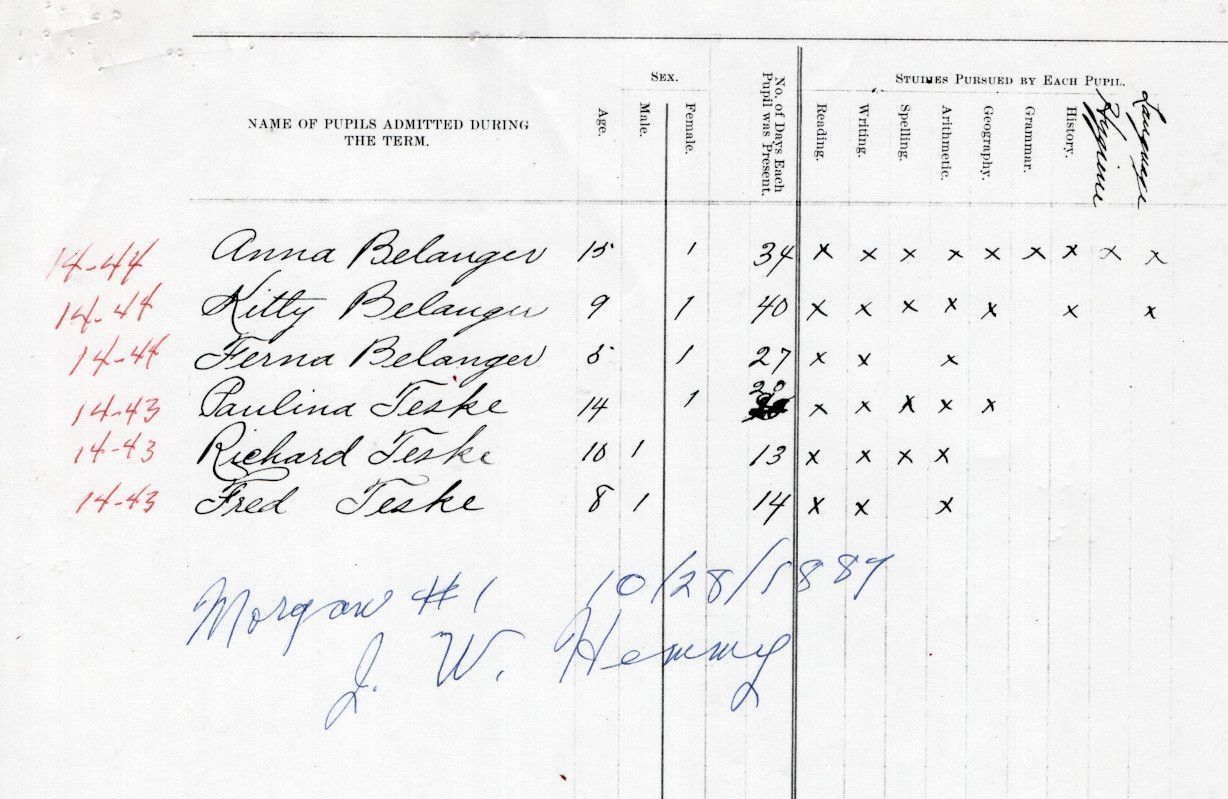 SEX.
STUDIES PURSUED BY EACH PUPIL.
NAME OF PUPILS ADMITTED DURING
THE TERM.
Age.
Male.
Female.
No. of Days Each
Pupil was Present.
Reading.
Writing.
Spelling.
Arithmetic.
Geography.
Grammar.
History.
Hygiene
Language
14-44 Anna Belanger 15 1 34 x x x x x x x x x
14-44 Kitty Belanger 9 1 40 x x x x x x x
14-44 Ferna Belanger 5 1 27 x x x
14-43 Paulina Teske 14 1 20 x x x x x
14-43 Richard Teske 10 1 13 x x x x
14-43 Fred Teske 8 1 14 x x x
Morgan #1 10/28/1889
J. W. Hemmy